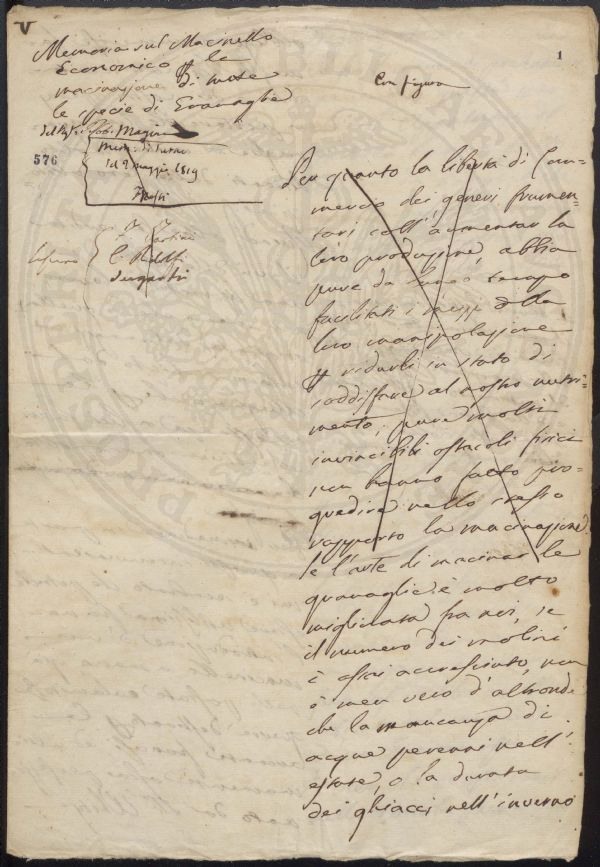 V
1
Memoria sul Macinello
Economico p la
macinazione di tutte
le specie di Granaglie
del Sig. Magini
mem. di turno
del 9 maggio 1819
Con figura
576
C. Ridolfi
Per quanto la libertà di Com=
mercio dei generi frumen=
tari coll'aumentar la
loro produzione, abbia
pure da tempo
facilitati i mezzi della
loro manipolazione
p ridurli in stato di
soddisfare al nostro nutri=
mento, pure molti
invincibili ostacoli fisici
non hanno fatto pro=
gredire nello stesso
rapporto la macinazione.
Se l'arte di macinar le
granaglie è molto
migliorata fra noi, se
il numero dei molini
è assai accresciuto, non
è men vero d'altronde
che la mancanza di
acque perenni nell'
estate, o la durata
dei ghiacci nell'inverno